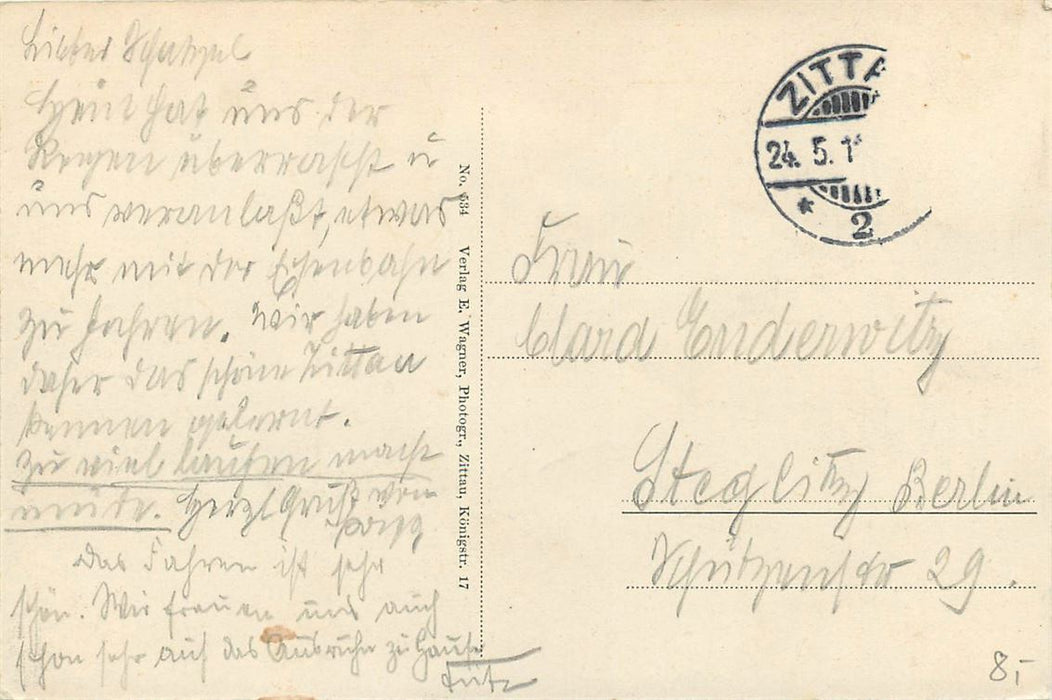 Liebes Schatzel
Heut hat uns der
Regen überrascht u
uns veranlaßt, etwas
mehr mit der Eisenbahn
zu fahren. Wir haben
daher das schöne Zittau
kennen gelernt.
Zu viel laufen macht
müde. Herzl Gruß von
Das Fahren ist sehr
schön. Wir freuen uns auch
schon sehr auf das Ausruhn zu Hause
No. 534 Verlag E. Wagner, Photogr., Zittau, Königstr. 17
ZITTA
24. 5. 1
* 2
Frau
Clara Enderwitz
Steglitz Berlin
Schützenstr 29.
8,-